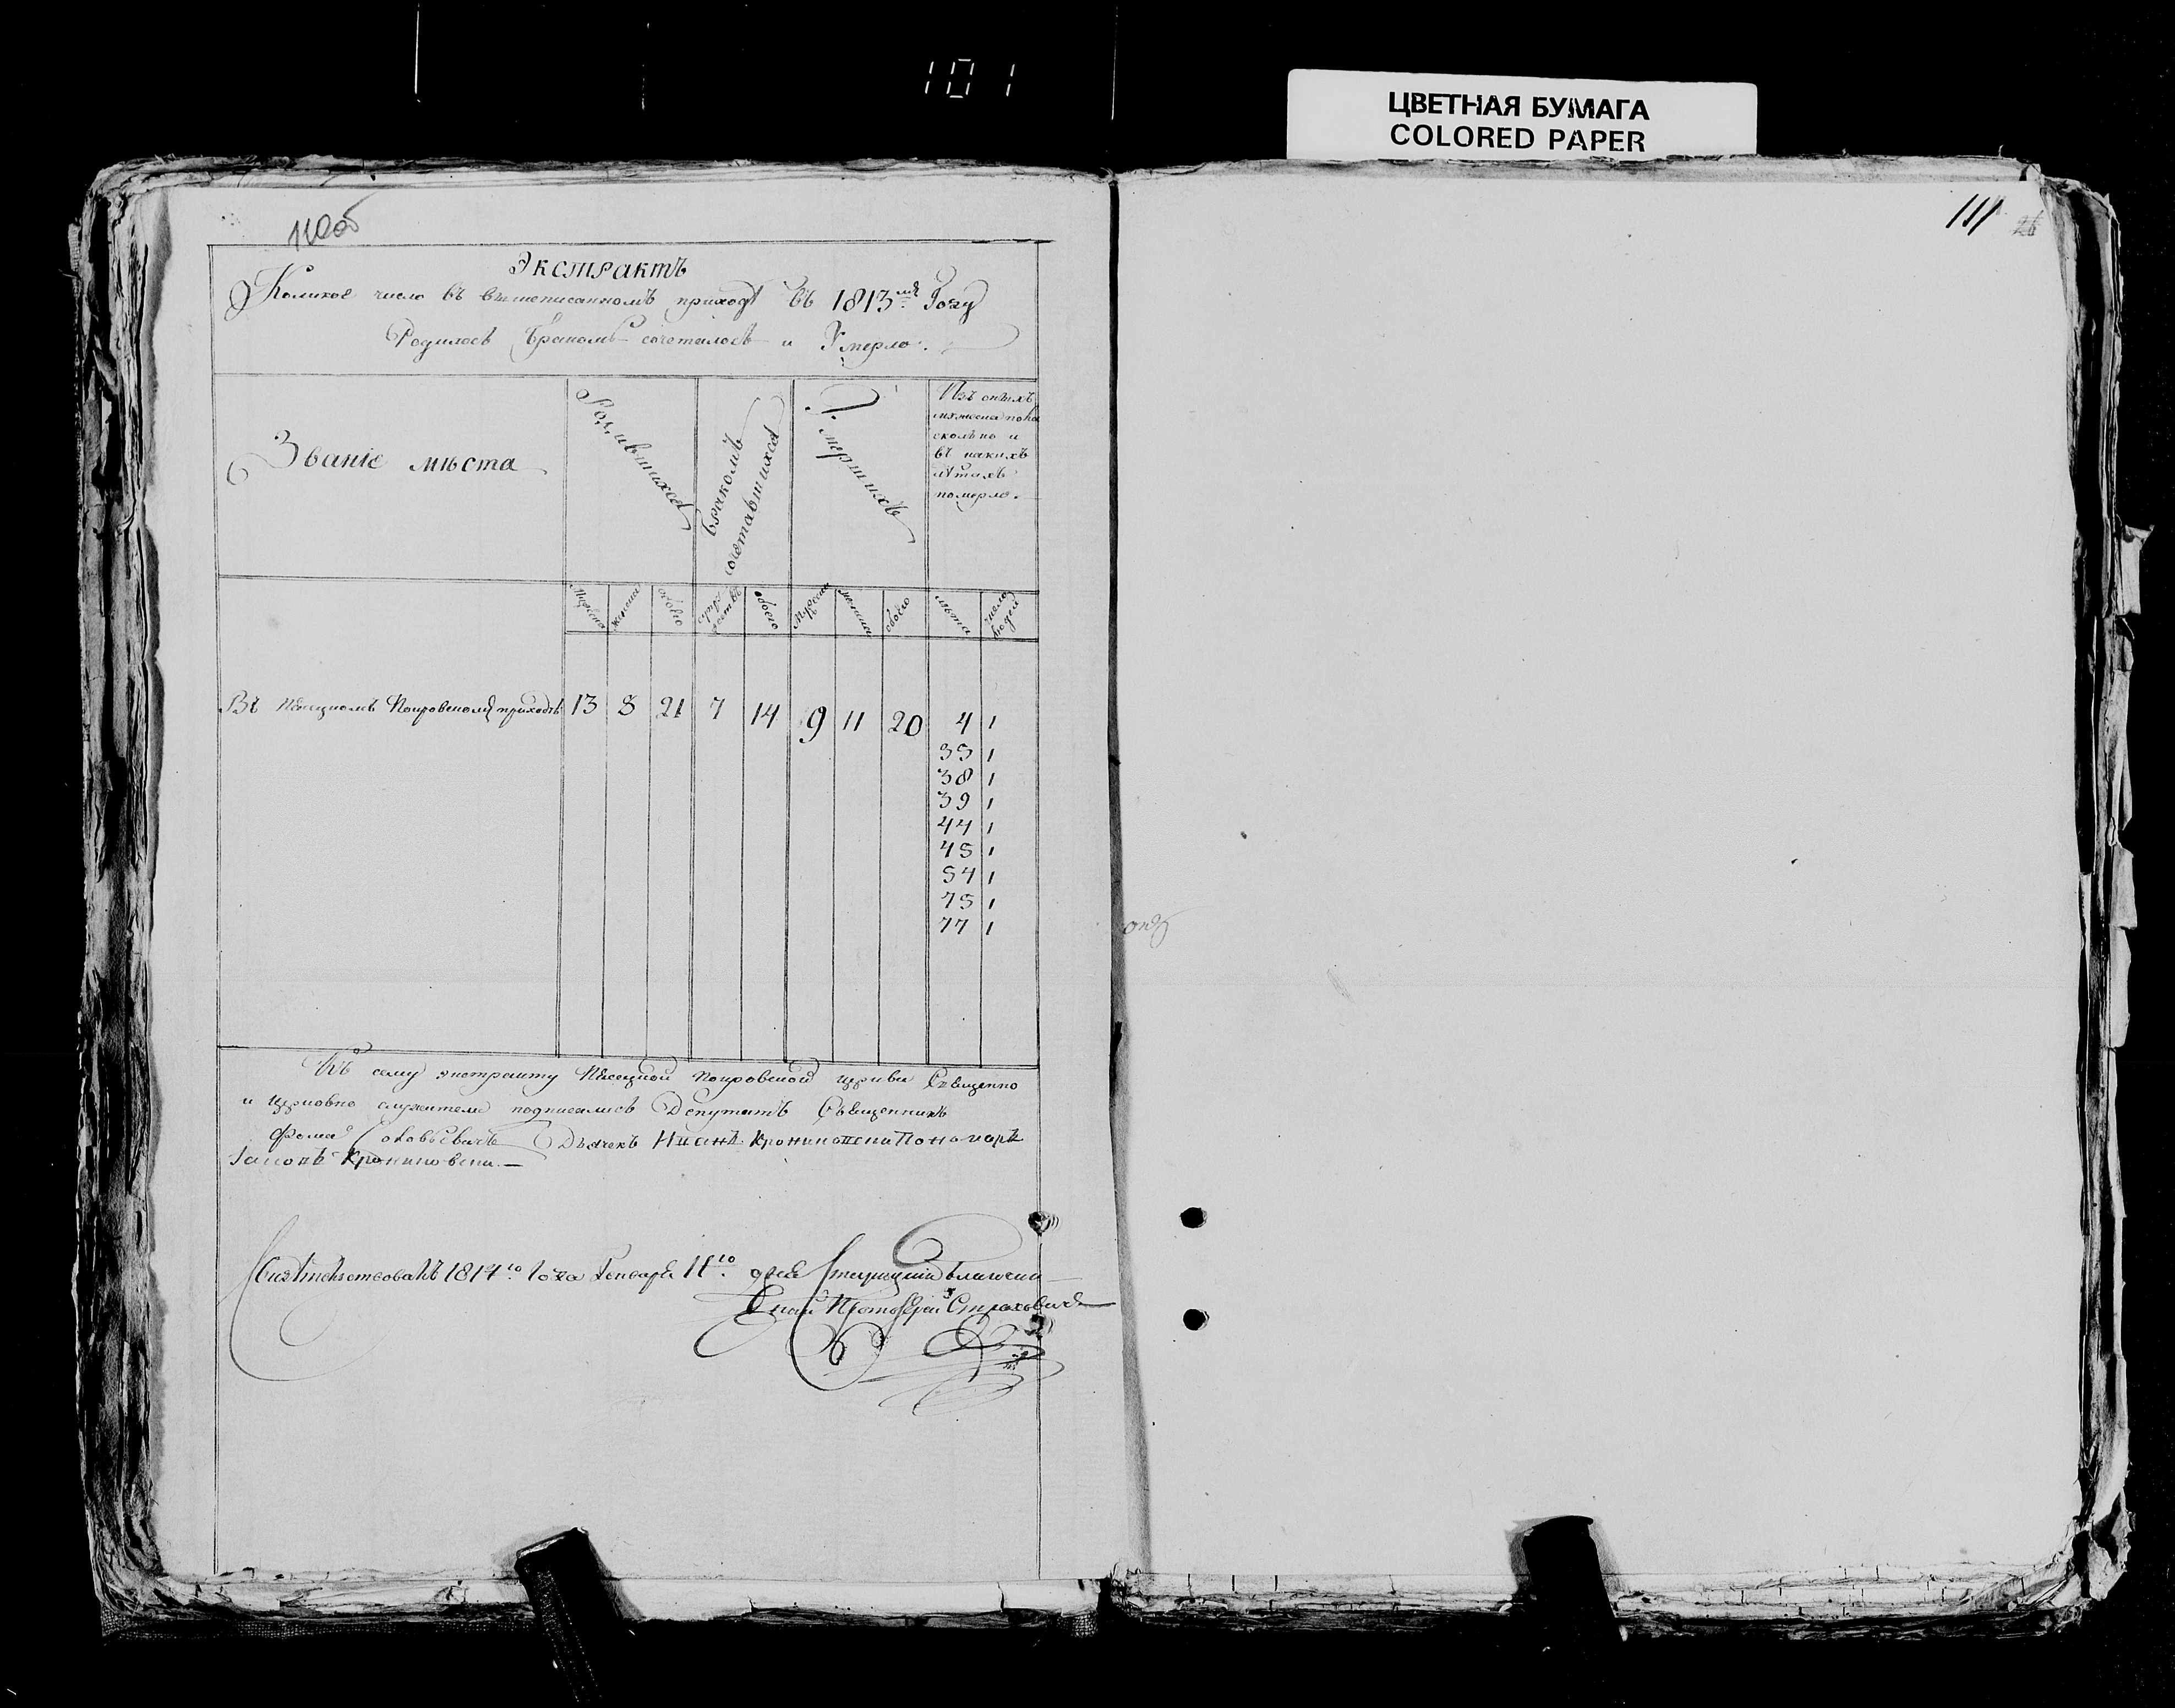 101
ЦВЕТНАЯ БУМАГА
COLORED PAPER
110об
111 26
Экстрактъ
Коликое число въ вышеписанномъ приходѣ въ 1813мъ Году
Родилось бракомъ сочеталось и Умерло.
Званіе мѣста
Родившихся
бракомъ
сочетавшихся
Умершихъ
Изъ оныхъ
мужеска пола
сколько и
въ какихъ
лѣтахъ
померло.
мужеска
женска
обоего
обоего
мужеска
женска
обоего
лѣта
число
людей
Въ Покровскомъ приходѣ 13 8 21 7 14 9 11 20 4 1
35 1
38 1
39 1
44 1
45 1
54 1
75 1
77 1
Къ сему экстракту Покровской церкви Священно
и церковно служители подписались Депутатъ Священникъ
Фома Дьячекъ Пономарь
Свидѣтельствовалъ 1814го Года Генваря дня
Протоіерей Страховичъ